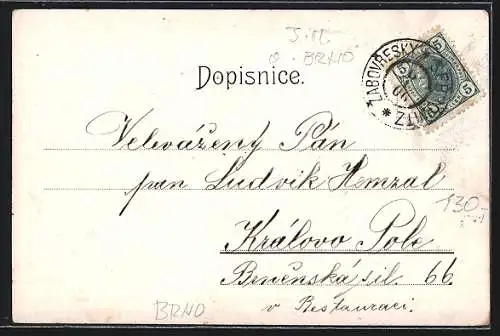 J.M.
BRNO
Dopisnice.
ŽABOVŘESKY
5 5
5
Velevážený Pán
pan Ludvik Hemzal
130-
Královo Pole
Benešská sil. 66.
v Restauraci.
BRNO